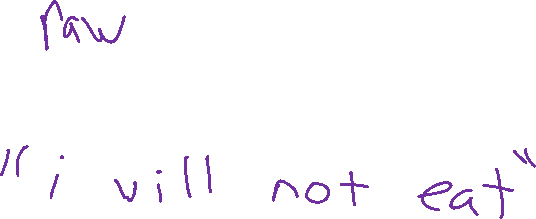 raw
"i vill not eat"